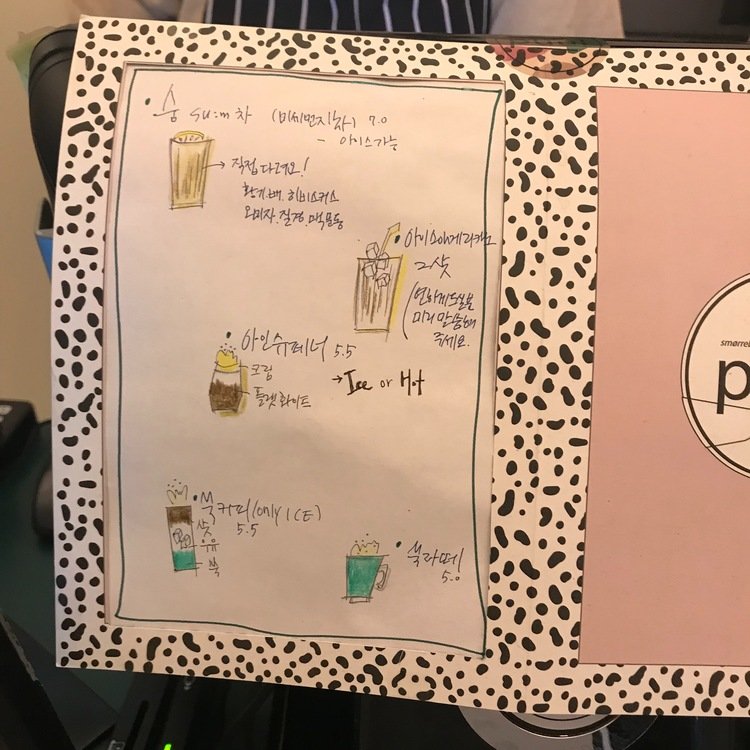 숨 su:m차 (미세먼지차) 7.0
- 아이스가능
→ 직접다려요!
황기.배.히비스커스
오미자.질경.맥문동
아이스아메리카노
2샷
(연하게드실분
미리말씀해
주세요.
아인슈페너 5.5
크림
플랫화이트
→ Ice or Hot
쑥커피(only ICE)
5.5
샷
우유
쑥
쑥라떼
5.0
smørre
p